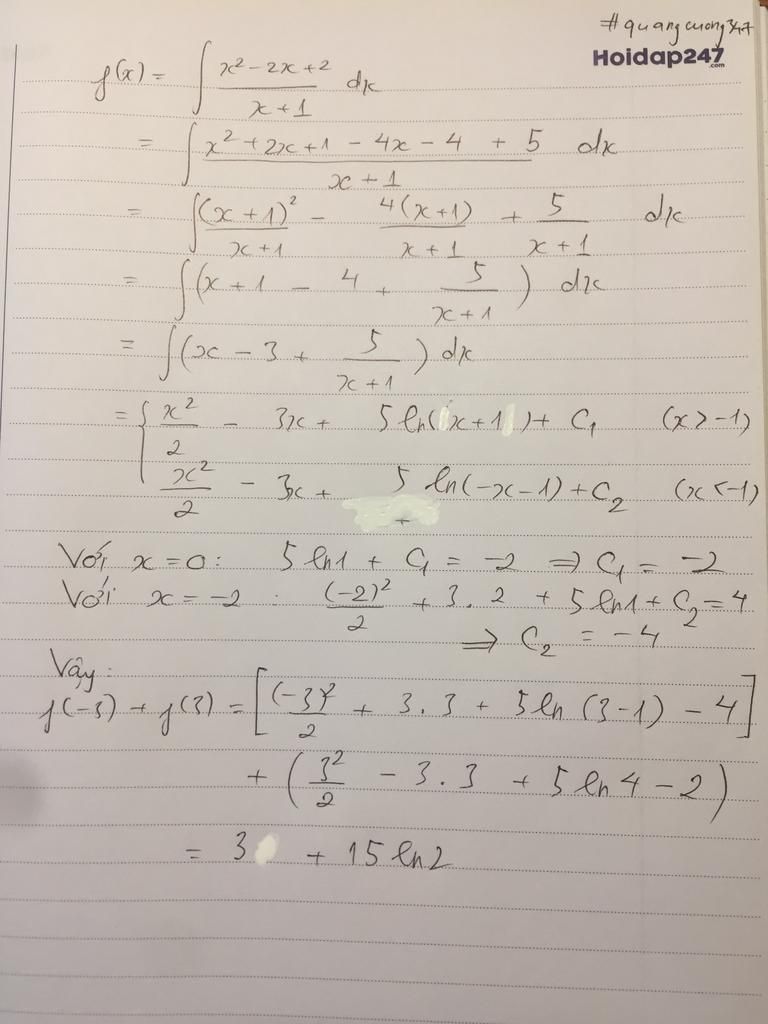 #quangcuong347
Hoidap247
.com
f(x) = ∫ (x² - 2x + 2)/(x + 1) dx
= ∫ (x² + 2x + 1 - 4x - 4 + 5)/(x + 1) dx
= ∫ (x + 1)²/(x + 1) - 4(x + 1)/(x + 1) + 5/(x + 1) dx
= ∫ (x + 1 - 4 + 5/(x + 1)) dx
= ∫ (x - 3 + 5/(x + 1)) dx
= { x²/2 - 3x + 5 ln(x + 1) + C₁ (x > -1)
x²/2 - 3x + 5 ln(-x - 1) + C₂ (x < -1)
+
Với x = 0 : 5 ln1 + C₁ = -2 ⇒ C₁ = -2
Với x = -2 : (-2)²/2 + 3.2 + 5 ln1 + C₂ = 4
⇒ C₂ = -4
Vậy:
f(-3) + f(3) = [(-3)²/2 + 3.3 + 5 ln(3 - 1) - 4]
+ (3²/2 - 3.3 + 5 ln4 - 2)
= 3 + 15 ln2